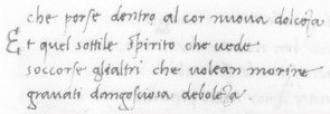 che porse dentro al cor nuova dolceza
Et quel sottile spirito che vede
soccorse glialtri che volean morire
gravati dangosciosa deboleza